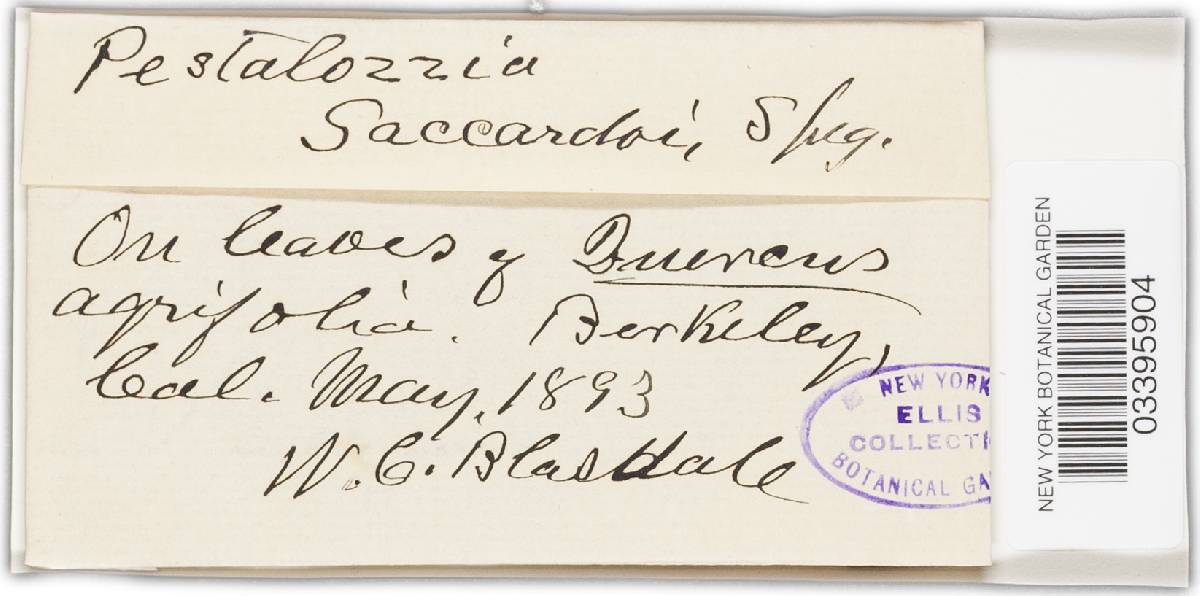 Pestalozzia
Saccardoi, Speg.
On leaves of Quercus
agrifolia. Berkeley,
Cal. May, 1893
W. C. Blasdale
NEW YORK
ELLIS
COLLECTI
BOTANICAL GA
NEW YORK BOTANICAL GARDEN
03395904